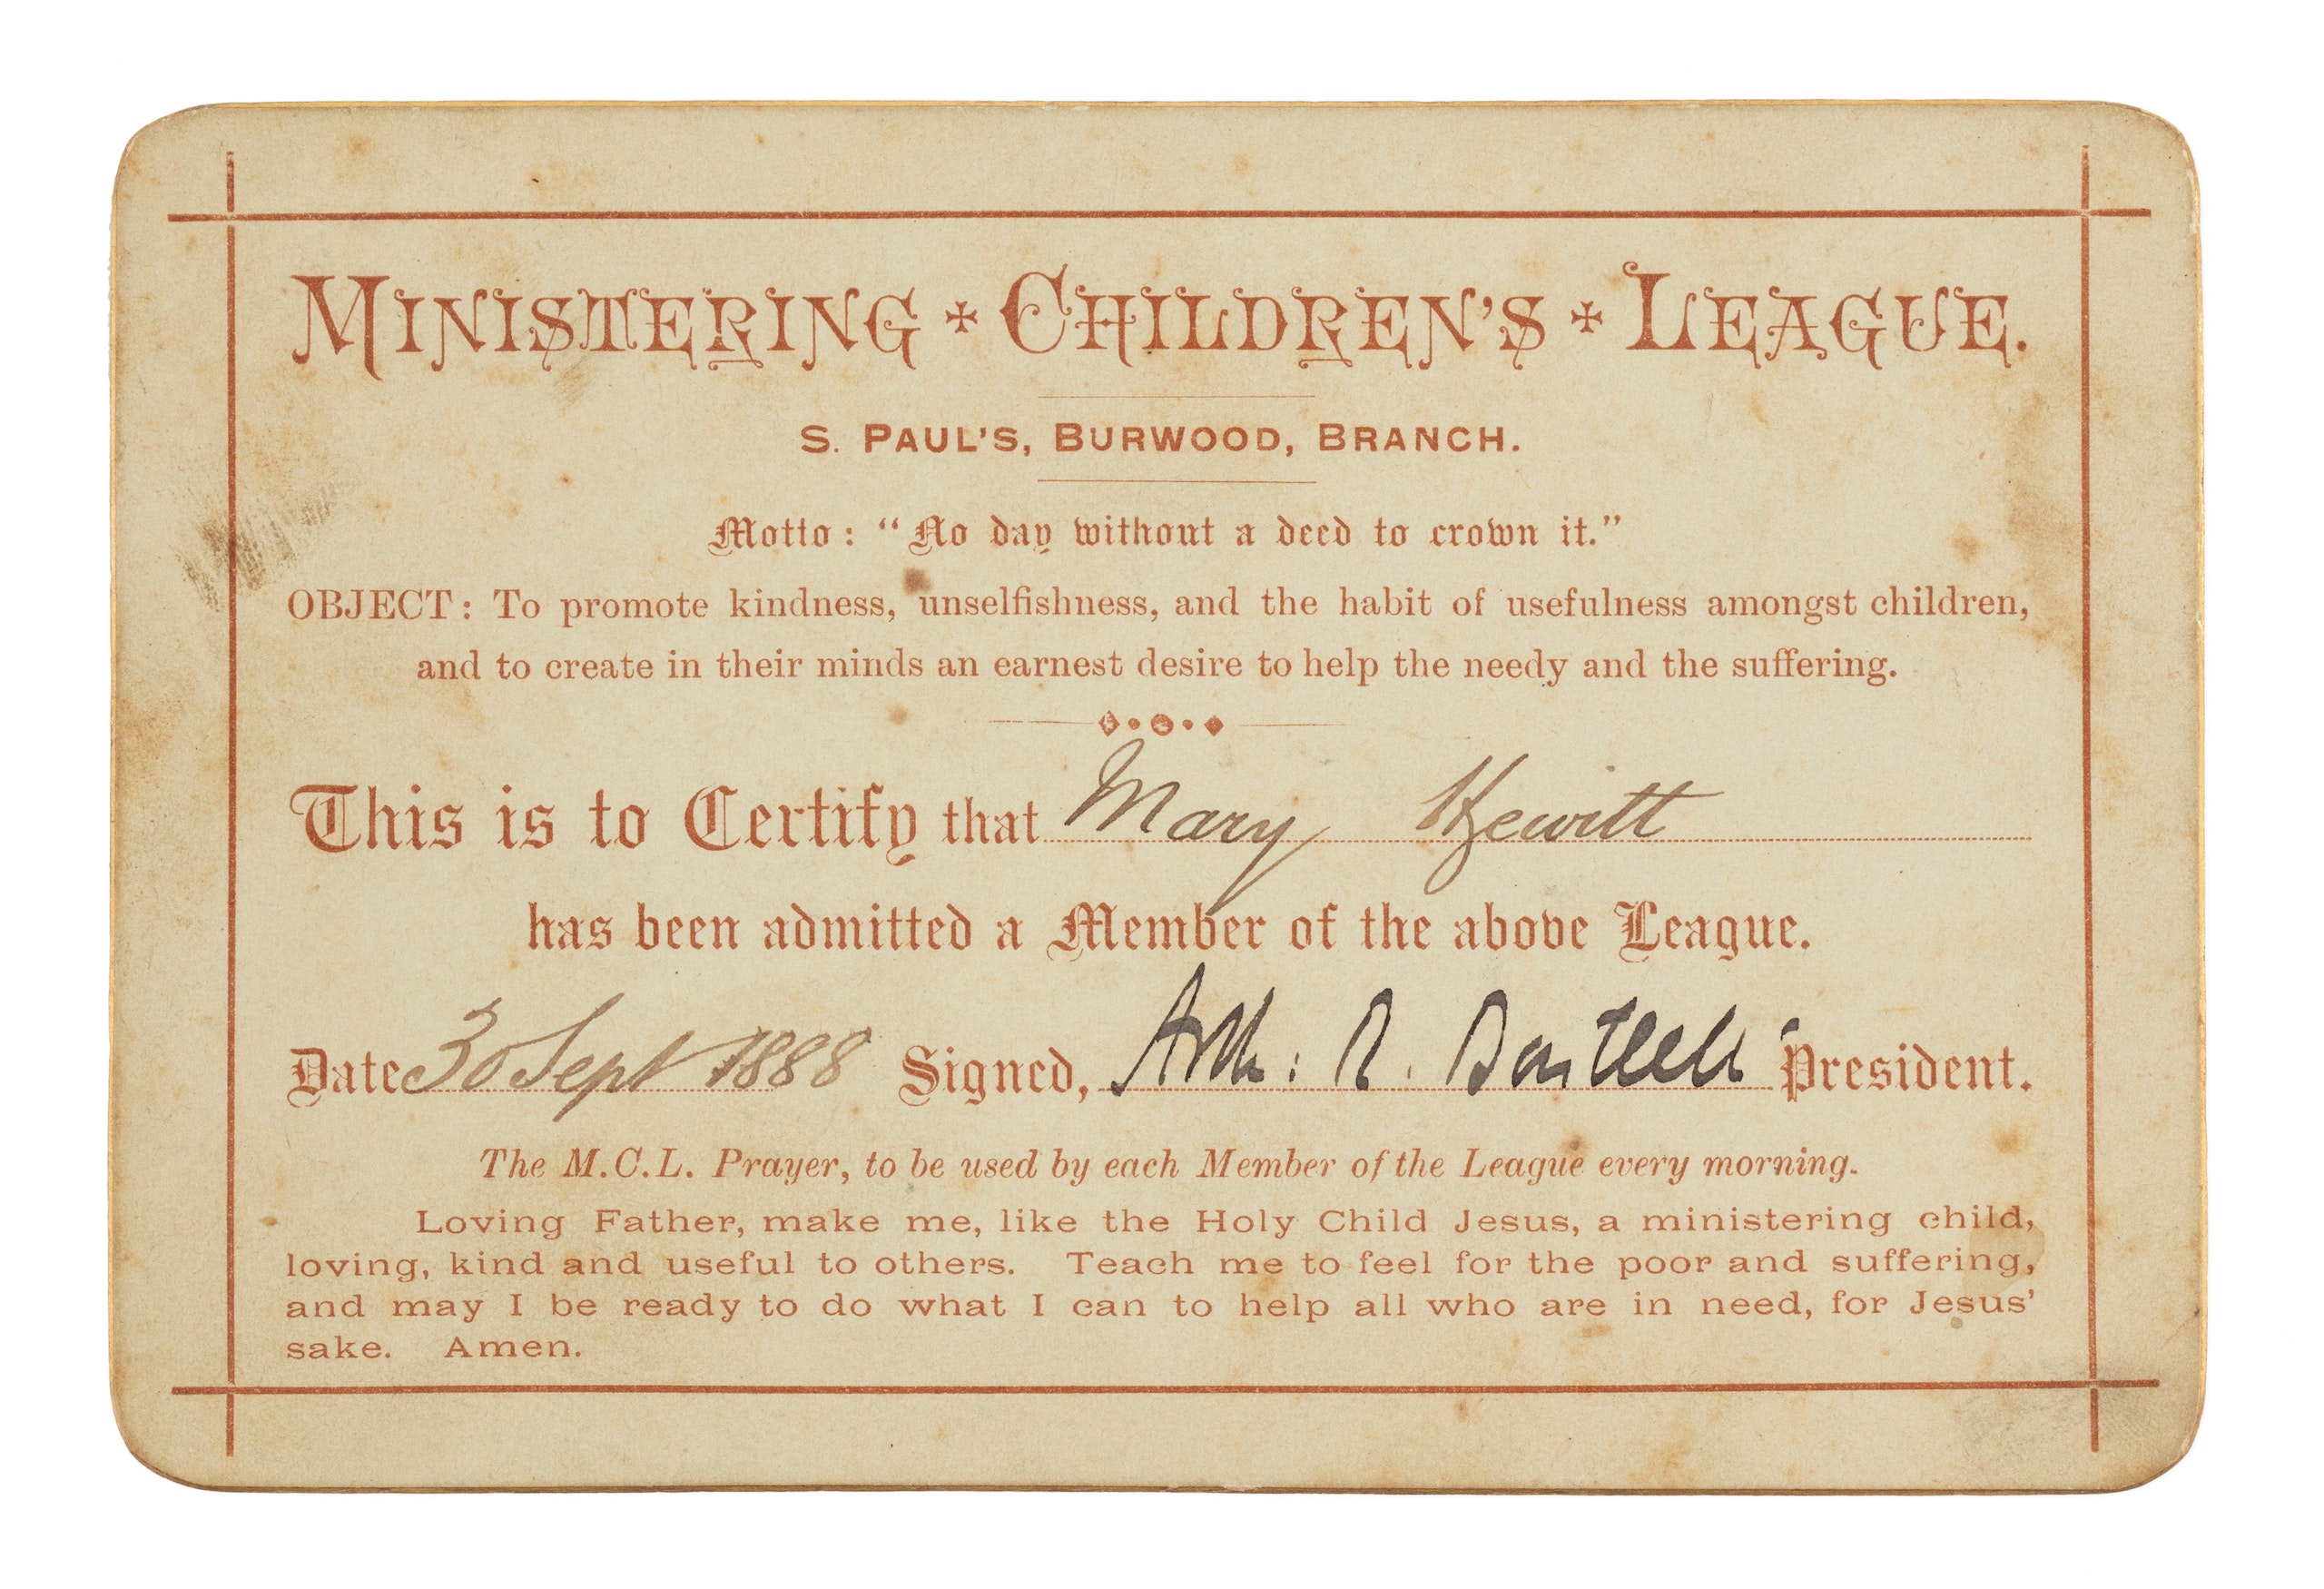 MINISTERING ✠ CHILDREN'S ✠ LEAGUE.
S. PAUL'S, BURWOOD, BRANCH.
Motto: "No day without a deed to crown it."
OBJECT: To promote kindness, unselfishness, and the habit of usefulness amongst children,
and to create in their minds an earnest desire to help the needy and the suffering.
This is to Certify that Mary Hewitt
has been admitted a Member of the above League.
Date 30 Sept 1888 Signed, Arth: R. Bartlett President.
The M.C.L. Prayer, to be used by each Member of the League every morning.
Loving Father, make me, like the Holy Child Jesus, a ministering child,
loving, kind and useful to others. Teach me to feel for the poor and suffering,
and may I be ready to do what I can to help all who are in need, for Jesus'
sake. Amen.